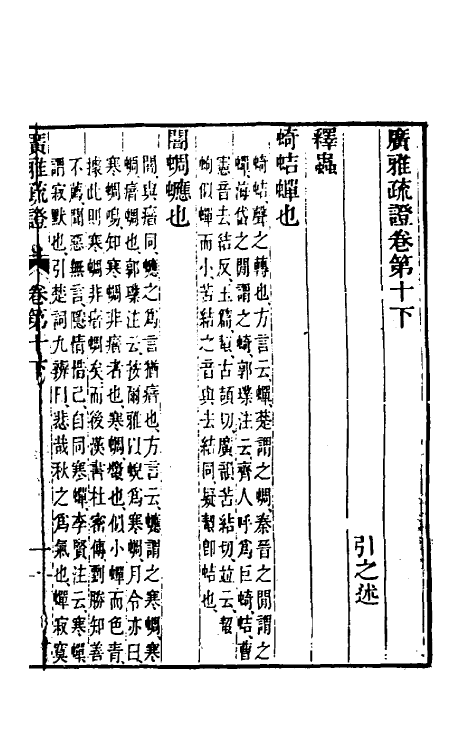 廣雅疏證卷第十下
引之述
釋蟲
蛣蟬也
蛣聲之轉也方言云蟬楚謂之蜩秦晉之閒謂之
蟬海岱之閒謂之郭璞注云齊人呼爲巨蛣曹
憲音去結反玉篇古頡切廣韻苦結切竝云
似蟬而小苦結之音與去結同疑卽蛣也
闇蜩蠽也
闇與瘖同之爲言猶瘖也方言云謂之寒蜩寒
蜩瘖蜩也郭璞注云按爾雅以蜺爲寒蜩月令亦曰
寒蜩鳴知寒蜩非瘖者也寒蜩螀也似小蟬而色靑
據此則寒蜩非瘖蜩矣而後漢書杜密傳劉勝知善
不薦聞惡無言隱情惜己自同寒蟬李賢注云寒蟬
謂寂默也引楚詞九辯曰悲哉秋之爲氣也蟬寂寞
廣雅疏證 卷第十下 一